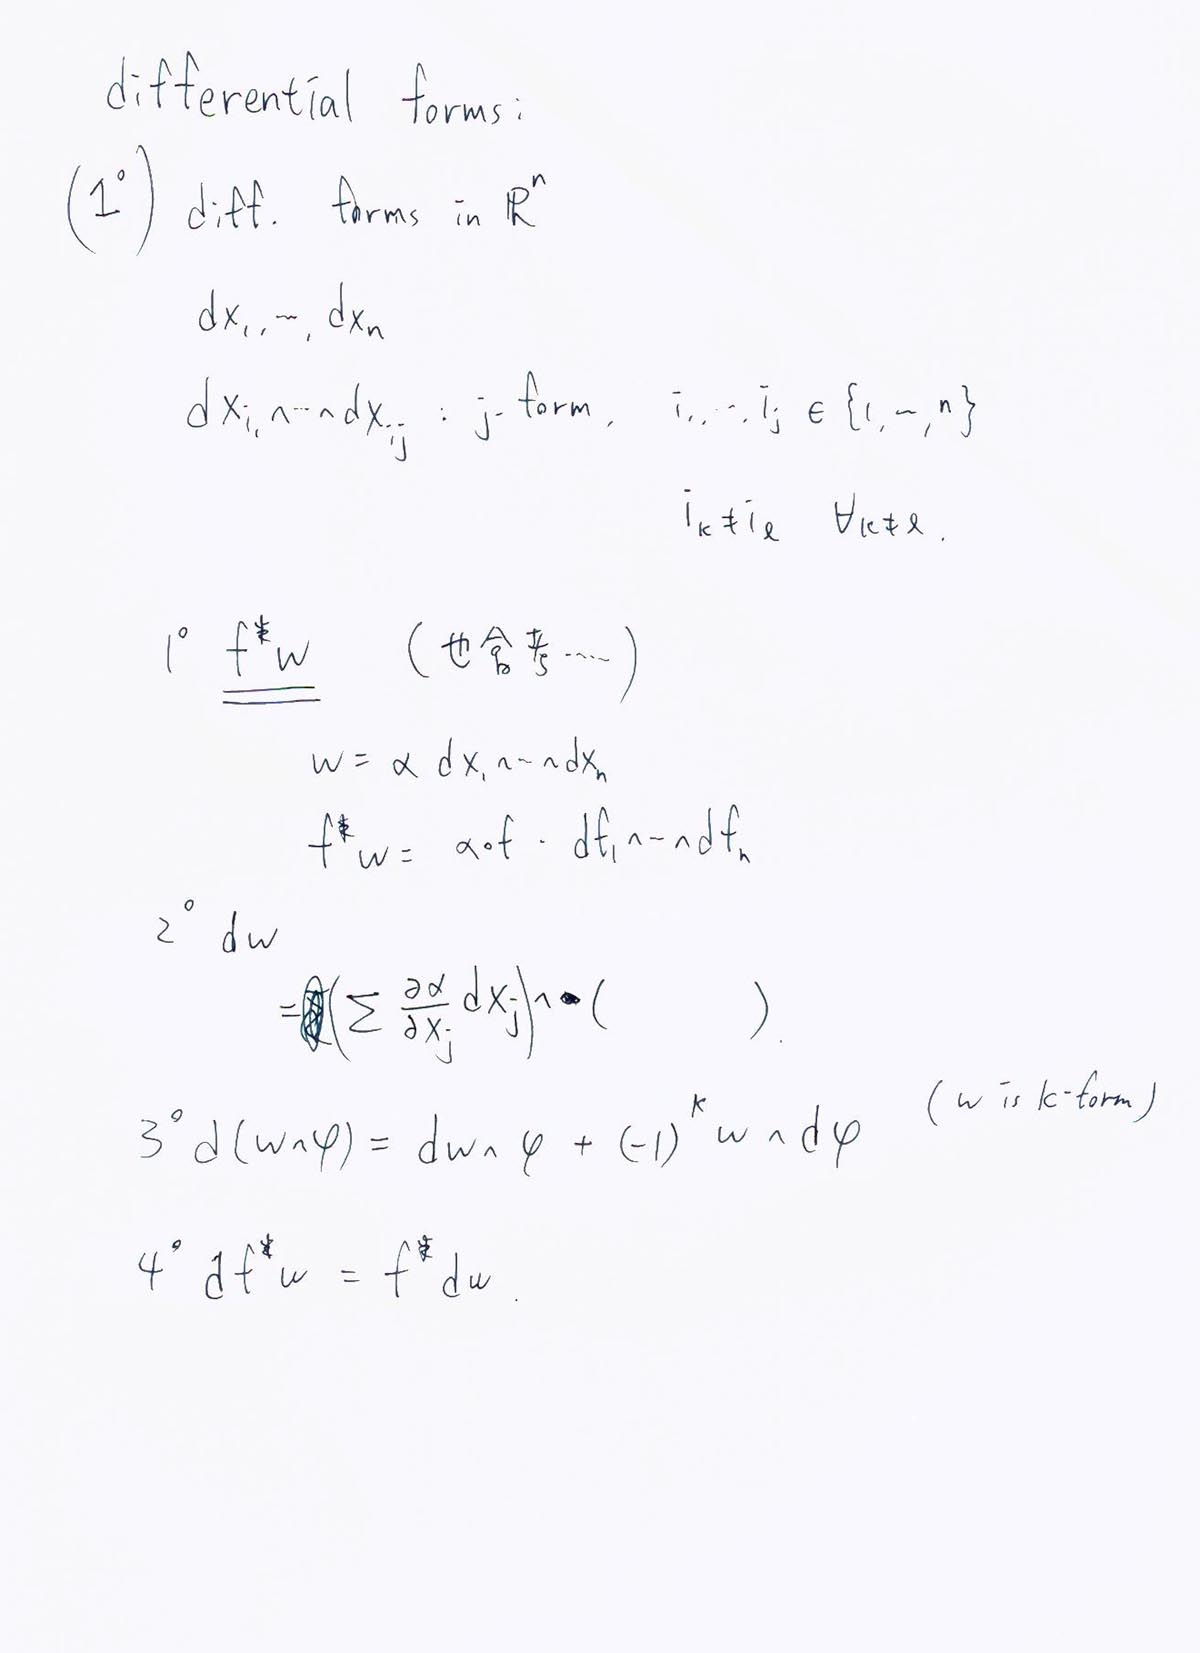 differential forms:
(1°) diff. forms in ℝⁿ
dx₁, ⋯, dxₙ
dx_{i₁} ∧ ⋯ ∧ dx_{i_j} : j-form, i₁, ⋯, i_j ∈ {1, ⋯, n}
i_k ≠ i_ℓ ∀k≠ℓ.
1° f*w (也會考⋯⋯)
w = α dx₁ ∧ ⋯ ∧ dxₙ
f*w = α∘f · df₁ ∧ ⋯ ∧ dfₙ
2° dw
= (∑ ∂α/∂x_j dx_j) ∧ ( ).
3° d(w∧φ) = dw∧φ + (-1)^k w∧dφ (w is k-form)
4° df*w = f*dw.